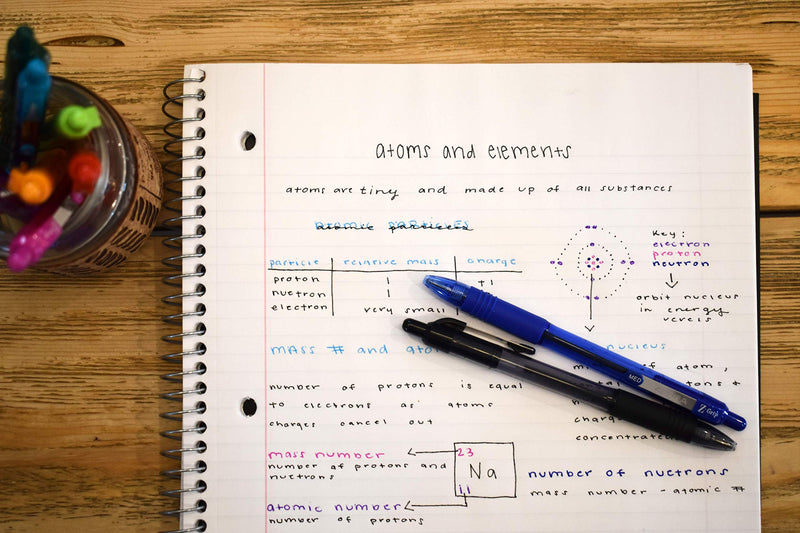 atoms and elements
atoms are tiny and made up of all substances
ATOMIC PARTICLES
particle relative mass charge
proton 1 +1
nuetron 1
electron very small
Key:
electron
proton
neutron
orbit nucleus
in energy
MASS # and
nucleus
of atom,
number of protons is equal
to electrons as atoms
charges cancel out
concentrated
mass number
number of protons and
nuetrons
23
Na
11
atomic number
number of protons
number of nuetrons
mass number - atomic #
MED
Z-Grip